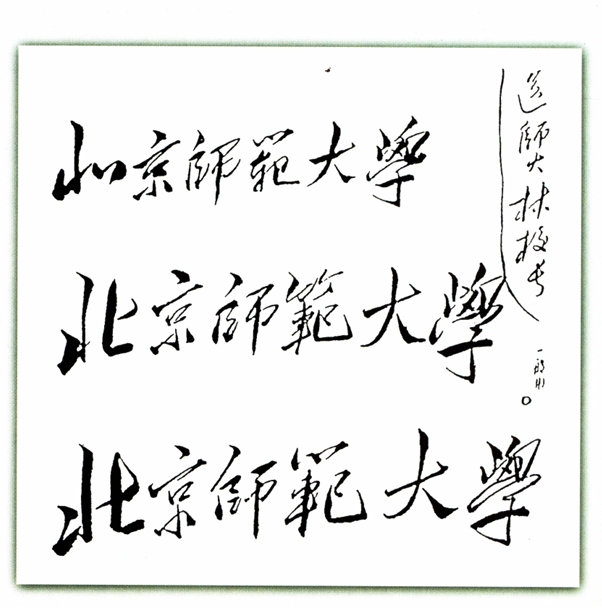 北京師範大學
北京師範大學
北京師範大學
送師大林校长